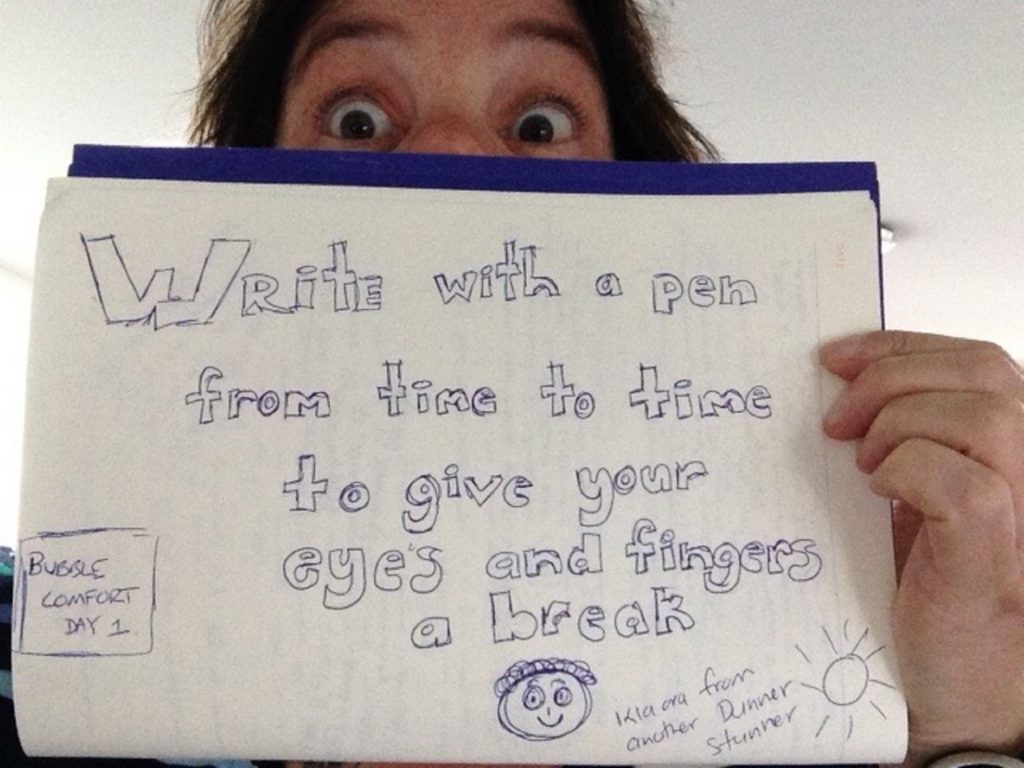 Write with a pen
from time to time
to give your
eye's and fingers
a break
BUBBLE
COMFORT
DAY 1
Kia ora from
another Dunner
stunner